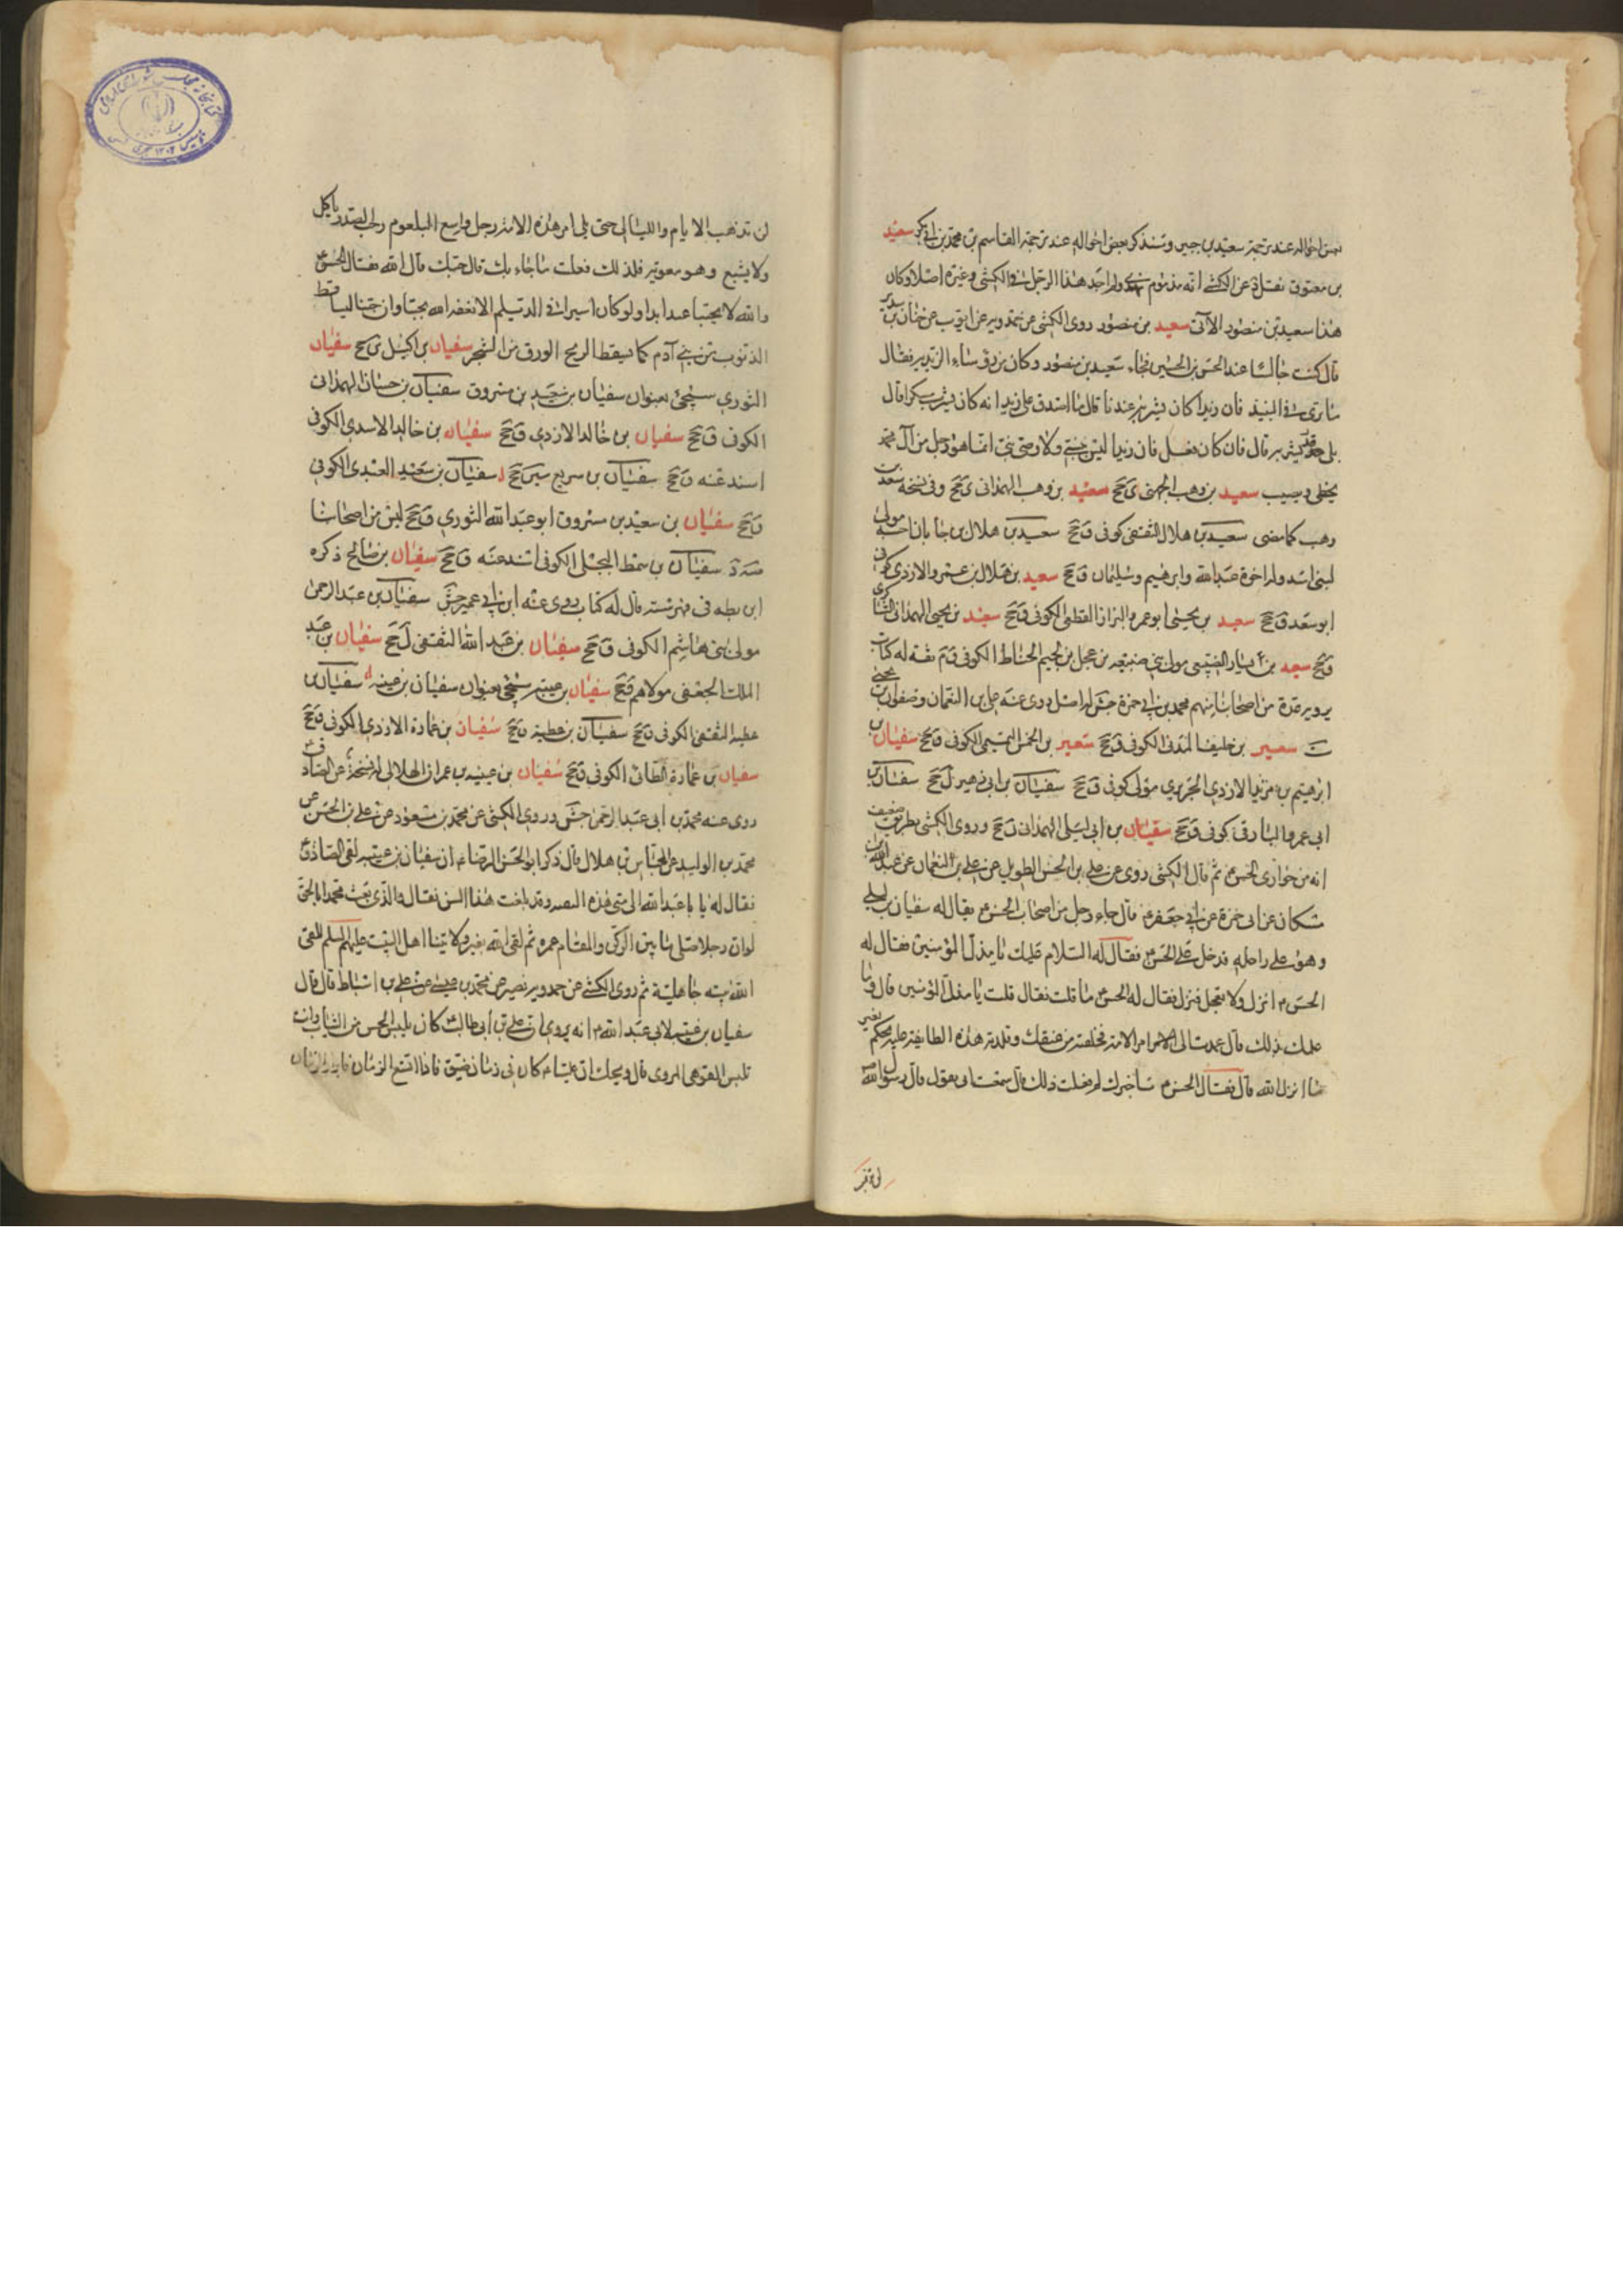 بعض احواله عند ترجمة سعيد بن جبير وسنذكر بعض احواله عند ترجمة القاسم بن محمد بن ابي بكر سعيد
بن معتوق نقل عن الكشي انه مذموم ولم اجد هذا الرجل في الكشي وغيره اصلا وكان
هذا سعيد بن منصور الآتي سعيد بن منصور روى الكشي عن حمدويه عن ايوب عن حنان بن سدير
قال كنت جالسا عند الحسن بن الحسين فجاء سعيد بن منصور وكان من رؤساء الزيدية فقال
ما ترى في النبيذ فان زيدا كان يشربه عندنا قال ما اصدق على زيد انه كان يشرب مسكرا قال
بلى قد يشربه قال فان كان فعل فان زيدا ليس بنبي ولا وصي نبي انما هو رجل من آل محمد
يخطي ويصيب سعيد بن وهب الجهني ى جخ سعيد بن وهب الهمداني ى جخ وفي نسخة سعد بن
وهب كما مضى سعيد بن هلال الثقفي كوفي ق جخ سعيد بن هلال بن جابان مولى
لبني اسد وله اخوة عبدالله وابرهيم وسليمان ق جخ سعيد بن هلال بن عمرو الازدي كوفي
ابو سعد ق جخ سعيد بن يحيى ابو عمرو البزاز القطعي الكوفي ق جخ سعيد بن يحيى الهمداني
ق جخ سعيد بن يسار الضبيعي مولى بني ضبيعة بن عجل بن لجيم الحناط الكوفي ق م ثقة له كتاب
يرويه عدة من اصحابنا منهم محمد بن ابي حمزة جش له اصل روى عنه علي بن النعمان وصفوان بن يحيى
ست سعير بن خليفا المدني الكوفي ق جخ سعير بن الخمس التميمي الكوفي ق جخ سفيان بن
ابرهيم بن مرثد الازدي الجريري مولى كوفي ق جخ سفيان بن ابي عمير ل جخ سفيان بن
ابي عمرو البارقي كوفي ق جخ سفيان بن ابي ليلى الهمداني ن جخ وروى الكشي بطريق ضعيف
انه من حواري الحسن ع ثم قال الكشي روى عن علي بن الحسن الطويل عن علي بن النعمان عن عبدالله بن
مسكان عن ابي حمزة عن ابي جعفر ع قال جاء رجل من اصحاب الحسن ع يقال له سفيان بن ليلى
وهو على راحلة فدخل على الحسن ع فقال له السلام عليك يا مذل المؤمنين فقال له
الحسن ع انزل ولا تعجل فنزل فقال له الحسن ع ما قلت فقال قلت يا مذل المؤمنين قال وما
علمك بذلك قال عمدت الى امر الامة فخلعته من عنقك وقلدته هذه الطاغية يحكم بغير
ما انزل الله قال فقال الحسن ع ساخبرك لم فعلت ذلك قال سمعت ابي يقول قال رسول الله
لن تذهب
لن تذهب الايام والليالي حتى يلي امر هذه الامة رجل واسع البلعوم رحب الصدر ياكل
ولا يشبع وهو معوية فلذلك فعلت ما جاء بك قال حبك قال الله فقال الحسن ع
والله لا يحبنا عبد ابدا ولو كان اسيرا في الديلم الا نفعه الله بحبنا وان حبنا ليساقط
الذنوب من بني آدم كما يسقط الريح الورق من الشجر سفيان بن اكيل ى جخ سفيان
الثوري سيجئ بعنوان سفيان بن سعيد بن مسروق سفيان بن حسان الهمداني
الكوفي ق جخ سفيان بن خالد الازدي ق جخ سفيان بن خالد الاسدي الكوفي
اسند عنه ق جخ سفيان بن سريع سين جخ سفيان بن سعيد العبدي الكوفي
ق جخ سفيان بن سعيد بن مسروق ابو عبدالله الثوري ق جخ ليس من اصحابنا
سفيان بن سمط البجلي الكوفي اسند عنه ق جخ سفيان بن صالح ذكره
ابن بطة في فهرسته قال له كتاب روى عنه ابن ابي عمير جش سفيان بن عبد الرحمن
مولى بني هاشم الكوفي ق جخ سفيان بن عبدالله الثقفي ل جخ سفيان بن عبد
الملك الجعفي مولاهم ق جخ سفيان بن عيينة سيجئ بعنوان سفيان بن عيينة سفيان بن
عطية الثقفي الكوفي ق جخ سفيان بن عطية ق جخ سفيان بن عمارة الازدي الكوفي ق جخ
سفيان بن عمارة الطائي الكوفي ق جخ سفيان بن عيينة بن عمران الهلالي له نسخة عن الصادق ع
روى عنه محمد بن ابي عبد الرحمن جش وروى الكشي عن محمد بن مسعود عن علي بن الحسن عن
محمد بن الوليد عن العباس بن هلال قال ذكر ابو الحسن الرضا ع ان سفيان بن عيينة لقي الصادق ع
فقال له يا ابا عبدالله الى متى هذه التقية وقد بلغت هذا السن فقال والذي بعث محمدا بالحق
لو ان رجلا صلى ما بين الركن والمقام عمره ثم لقي الله بغير ولايتنا اهل البيت عليهم السلم للقى
الله ميتة جاهلية ثم روى الكشي عن حمدويه بن نصير عن محمد بن عيسى عن علي بن اسباط قال قال
سفيان بن عيينة لابي عبدالله ع انه يروى ان علي بن ابي طالب ع كان يلبس الخشن من الثياب وانت
تلبس القوهي المروي قال ويحك ان عليا ع كان في زمان ضيق فاذا اتسع الزمان